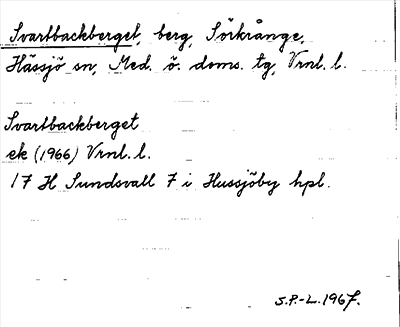 Svartbackberget, berg, Sörkrånge,
Hässjö sn, Med. ö. doms. tg, Vrnl. l.
Svartbackberget
ek (1966) Vrnl. l.
17 H Sundsvall 7 i Hussjöby hpl.
S.P.-L. 1967.